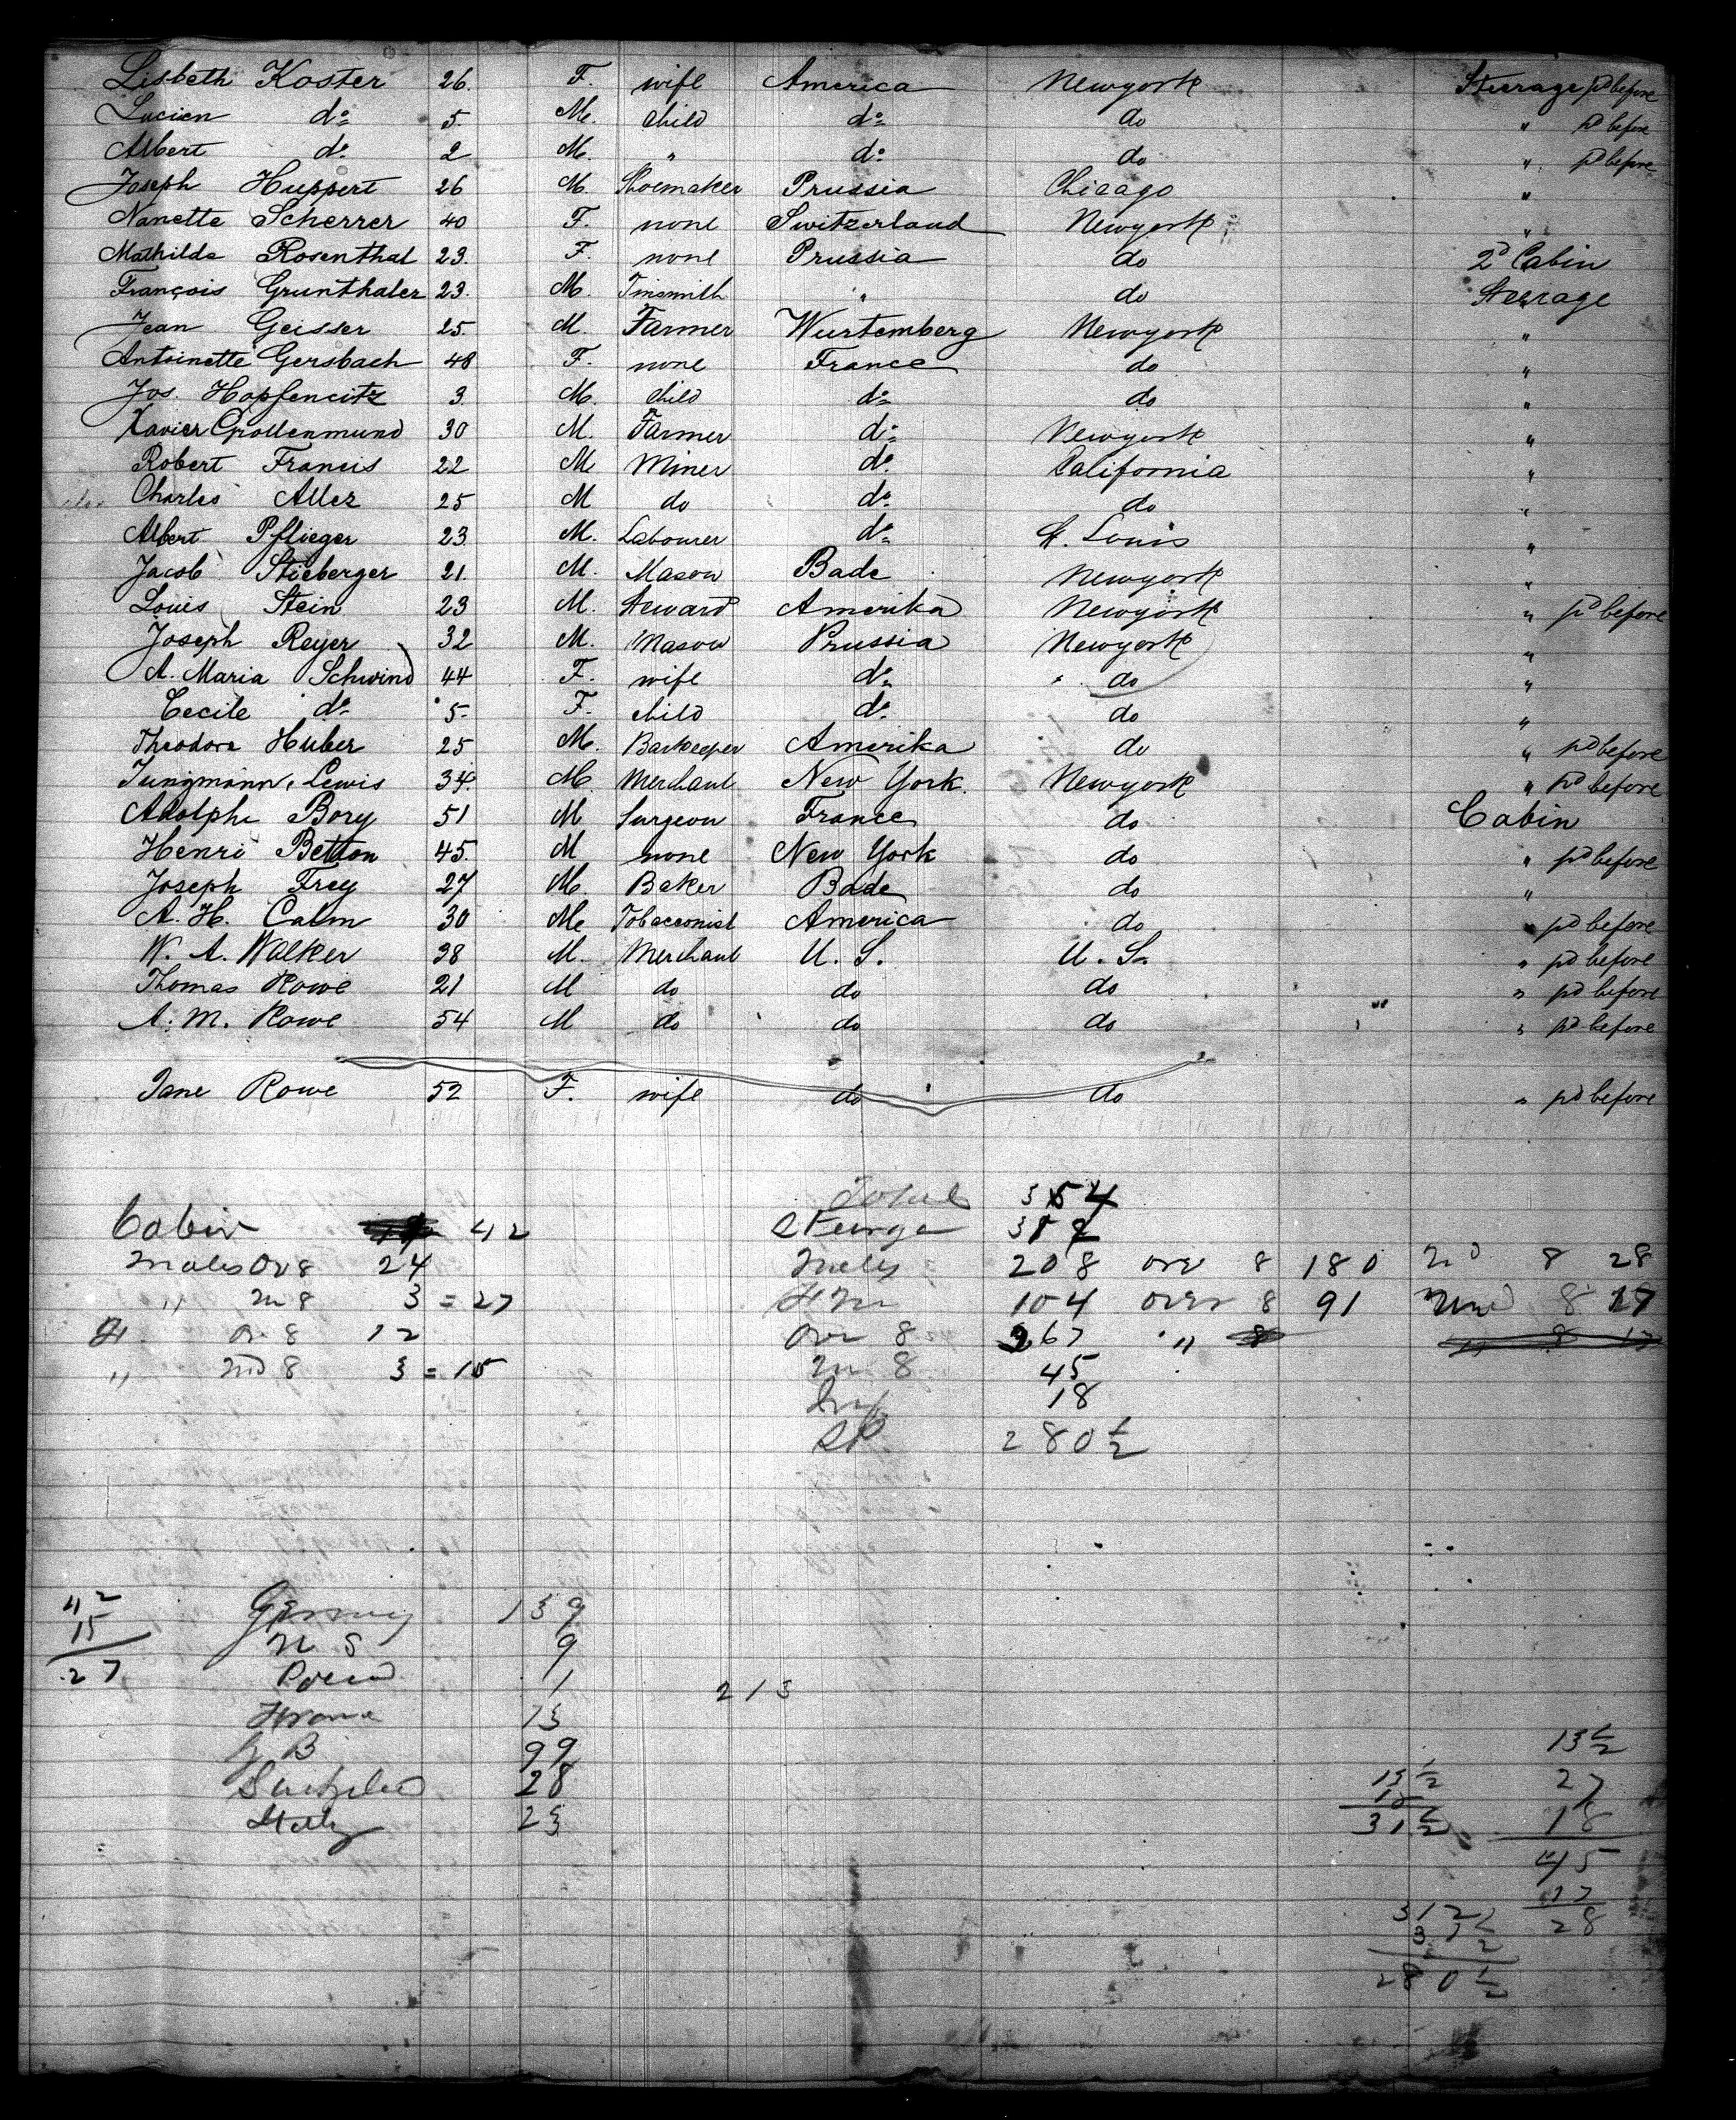 Lisbeth Koster 26. F. wife America Newyork Steerage pd before
Lucien do 5. M. Child do do " pd before
Albert do 2 M. " do do " pd before
Joseph Huppert 26 M. Shoemaker Prussia Chicago "
Nanette Scherrer 40 F. none Switzerland Newyork "
Mathilda Rosenthal 23. F. none Prussia do 2d Cabin
François Grunthaler 23. M. Tinsmith " do Steerage
Jean Geisser 25. M. Farmer Wurtemberg Newyork "
Antoinette Gersbach 48 F. none France do "
Jos. Hopfencitz 3. M. child do do "
Xavier Grollenmund 30 M. Farmer do Newyork "
Robert Francis 22 M. Miner do California "
Charles Aller 25 M do do do "
Albert Pflieger 23. M. Labourer do St. Louis "
Jacob Stieberger 21. M. Mason Bade Newyork "
Louis Stein 23 M. Steward Amerika Newyork " pd before
Joseph Reyer 32 M. Mason Prussia Newyork "
A. Maria Schwind 44 F. wife do " do "
Cecile do 5- F. child do do "
Theodore Huber 25 M. Barkeeper Amerika do " pd before
Jungmann, Lewis 34. M. Merchant New York. Newyork " pd before
Adolphe Bory 51 M Surgeon France do Cabin
Henri Betton 45. M none New York do " pd before
Joseph Frey 27 M Baker Bade do "
A. H. Calm 30 M Tobacconist America do " pd before
W. A. Walker 38 M. Merchant U. S. U. S. " pd before
Thomas Rowe 21 M do do do " pd before
A. M. Rowe 54 M do do do " pd before
Jane Rowe 52 F. wife do do " pd before
Total 354
Cabin 42 Steerage 312
Males Ov 8 24 Males 208 over 8 180 Un 8 28
" Un 8 3 = 27 Fem 104 over 8 91 Und 8 17
F. Ov 8 12 Over 8 267 "
" Und 8 3 = 15 Un 8 45
Inf 18
280 1/2
42
15
27
Germany 139
U S 9
1
213
France 13
G B 99
Switzerland 28
Italy 23
13 1/2
27
18
45
17
28
13 1/2
18
31 1/2
312
280 1/2